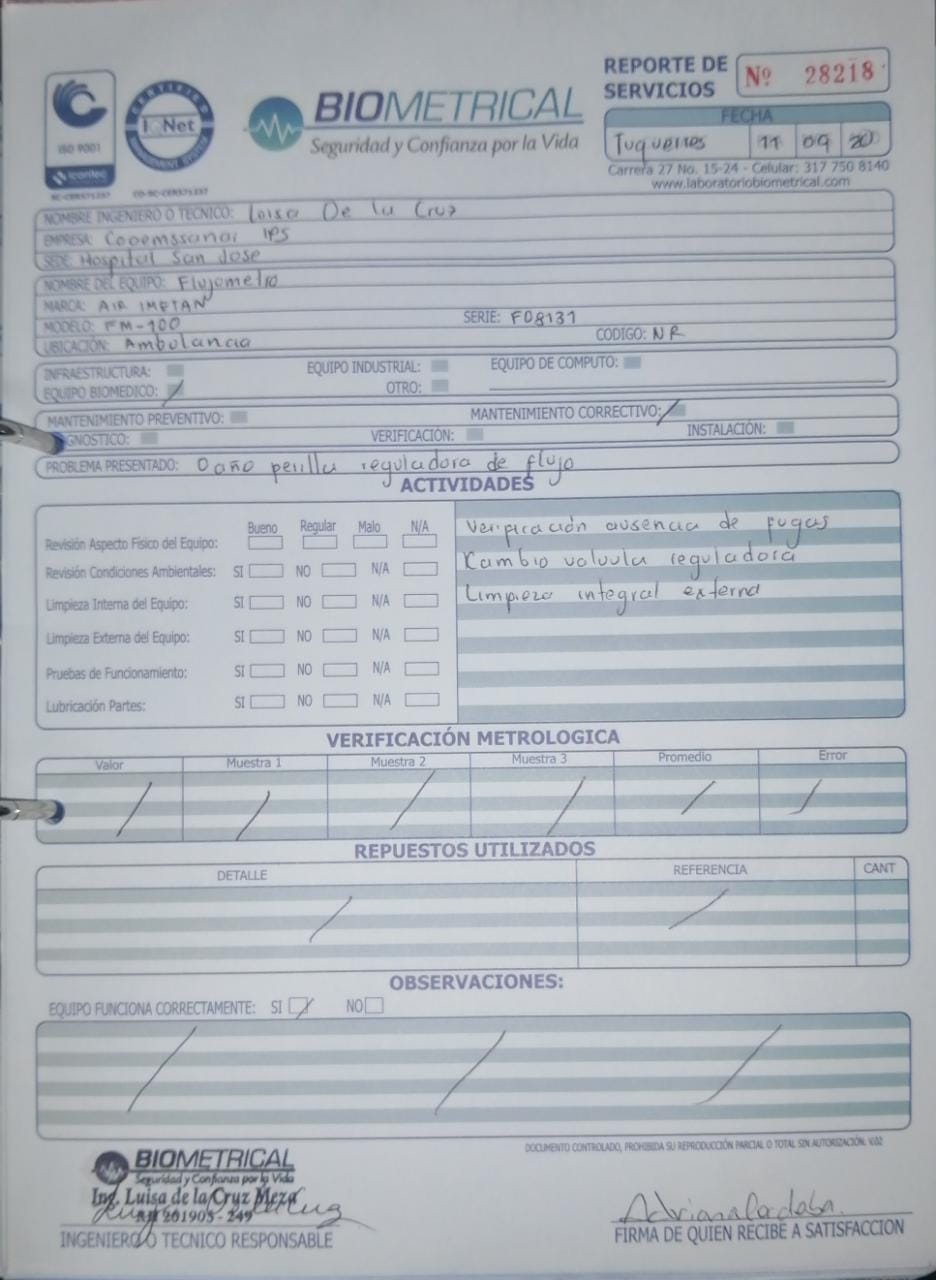 REPORTE DE SERVICIOS
Nº 28218
ISO 9001
icontec
SC-CER571357
CERTIFIED
IQNet
MANAGEMENT SYSTEM
CO-SC-CER571357
BIOMETRICAL
Seguridad y Confianza por la Vida
FECHA
Tuquerres 11 09 20
Carrera 27 No. 15-24 - Celular: 317 750 8140
www.laboratoriobiometrical.com
NOMBRE INGENIERO O TECNICO: Loisa De la Cruz
EMPRESA: Cooemssanar IPS
SEDE: Hospital San Jose
NOMBRE DEL EQUIPO: Flujometro
MARCA: AIR IMETAN
MODELO: FM-100 SERIE: F08131
UBICACIÓN: Ambulancia CODIGO: NR
INFRAESTRUCTURA: EQUIPO INDUSTRIAL: EQUIPO DE COMPUTO:
EQUIPO BIOMEDICO: / OTRO:
MANTENIMIENTO PREVENTIVO: MANTENIMIENTO CORRECTIVO: /
GNOSTICO: VERIFICACIÓN: INSTALACIÓN:
PROBLEMA PRESENTADO: Daño perilla reguladora de flujo
ACTIVIDADES
Bueno Regular Malo N/A
Revisión Aspecto Físico del Equipo:
Revisión Condiciones Ambientales: SI NO N/A
Limpieza Interna del Equipo: SI NO N/A
Limpieza Externa del Equipo: SI NO N/A
Pruebas de Funcionamiento: SI NO N/A
Lubricación Partes: SI NO N/A
Verificación ausencia de fugas
Cambio valvula reguladora
Limpieza integral externa
VERIFICACIÓN METROLOGICA
Valor Muestra 1 Muestra 2 Muestra 3 Promedio Error
/ / / / / /
REPUESTOS UTILIZADOS
DETALLE REFERENCIA CANT
/ /
OBSERVACIONES:
EQUIPO FUNCIONA CORRECTAMENTE: SI / NO
/ / /
DOCUMENTO CONTROLADO, PROHIBIDA SU REPRODUCCIÓN PARCIAL O TOTAL SIN AUTORIZACIÓN. V.02
BIOMETRICAL
Seguridad y Confianza por la Vida
Ing. Luisa de la Cruz Meza
201905 - 249
INGENIERO O TECNICO RESPONSABLE
Adriana Cordoba.
FIRMA DE QUIEN RECIBE A SATISFACCION